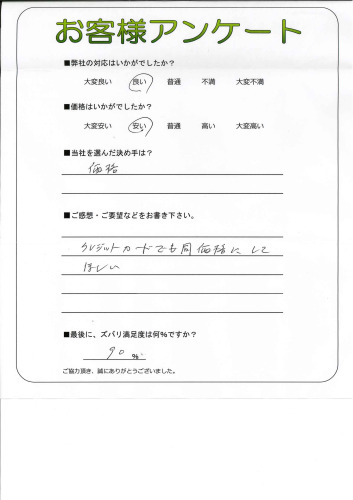 お客様アンケート
■弊社の対応はいかがでしたか?
大変良い 良い 普通 不満 大変不満
■価格はいかがでしたか?
大変安い 安い 普通 高い 大変高い
■当社を選んだ決め手は?
価格
■ご感想・ご要望などをお書き下さい。
クレジットカードでも同価格にして
ほしい
■最後に、ズバリ満足度は何%ですか?
90 %.
ご協力頂き、誠にありがとうございました。